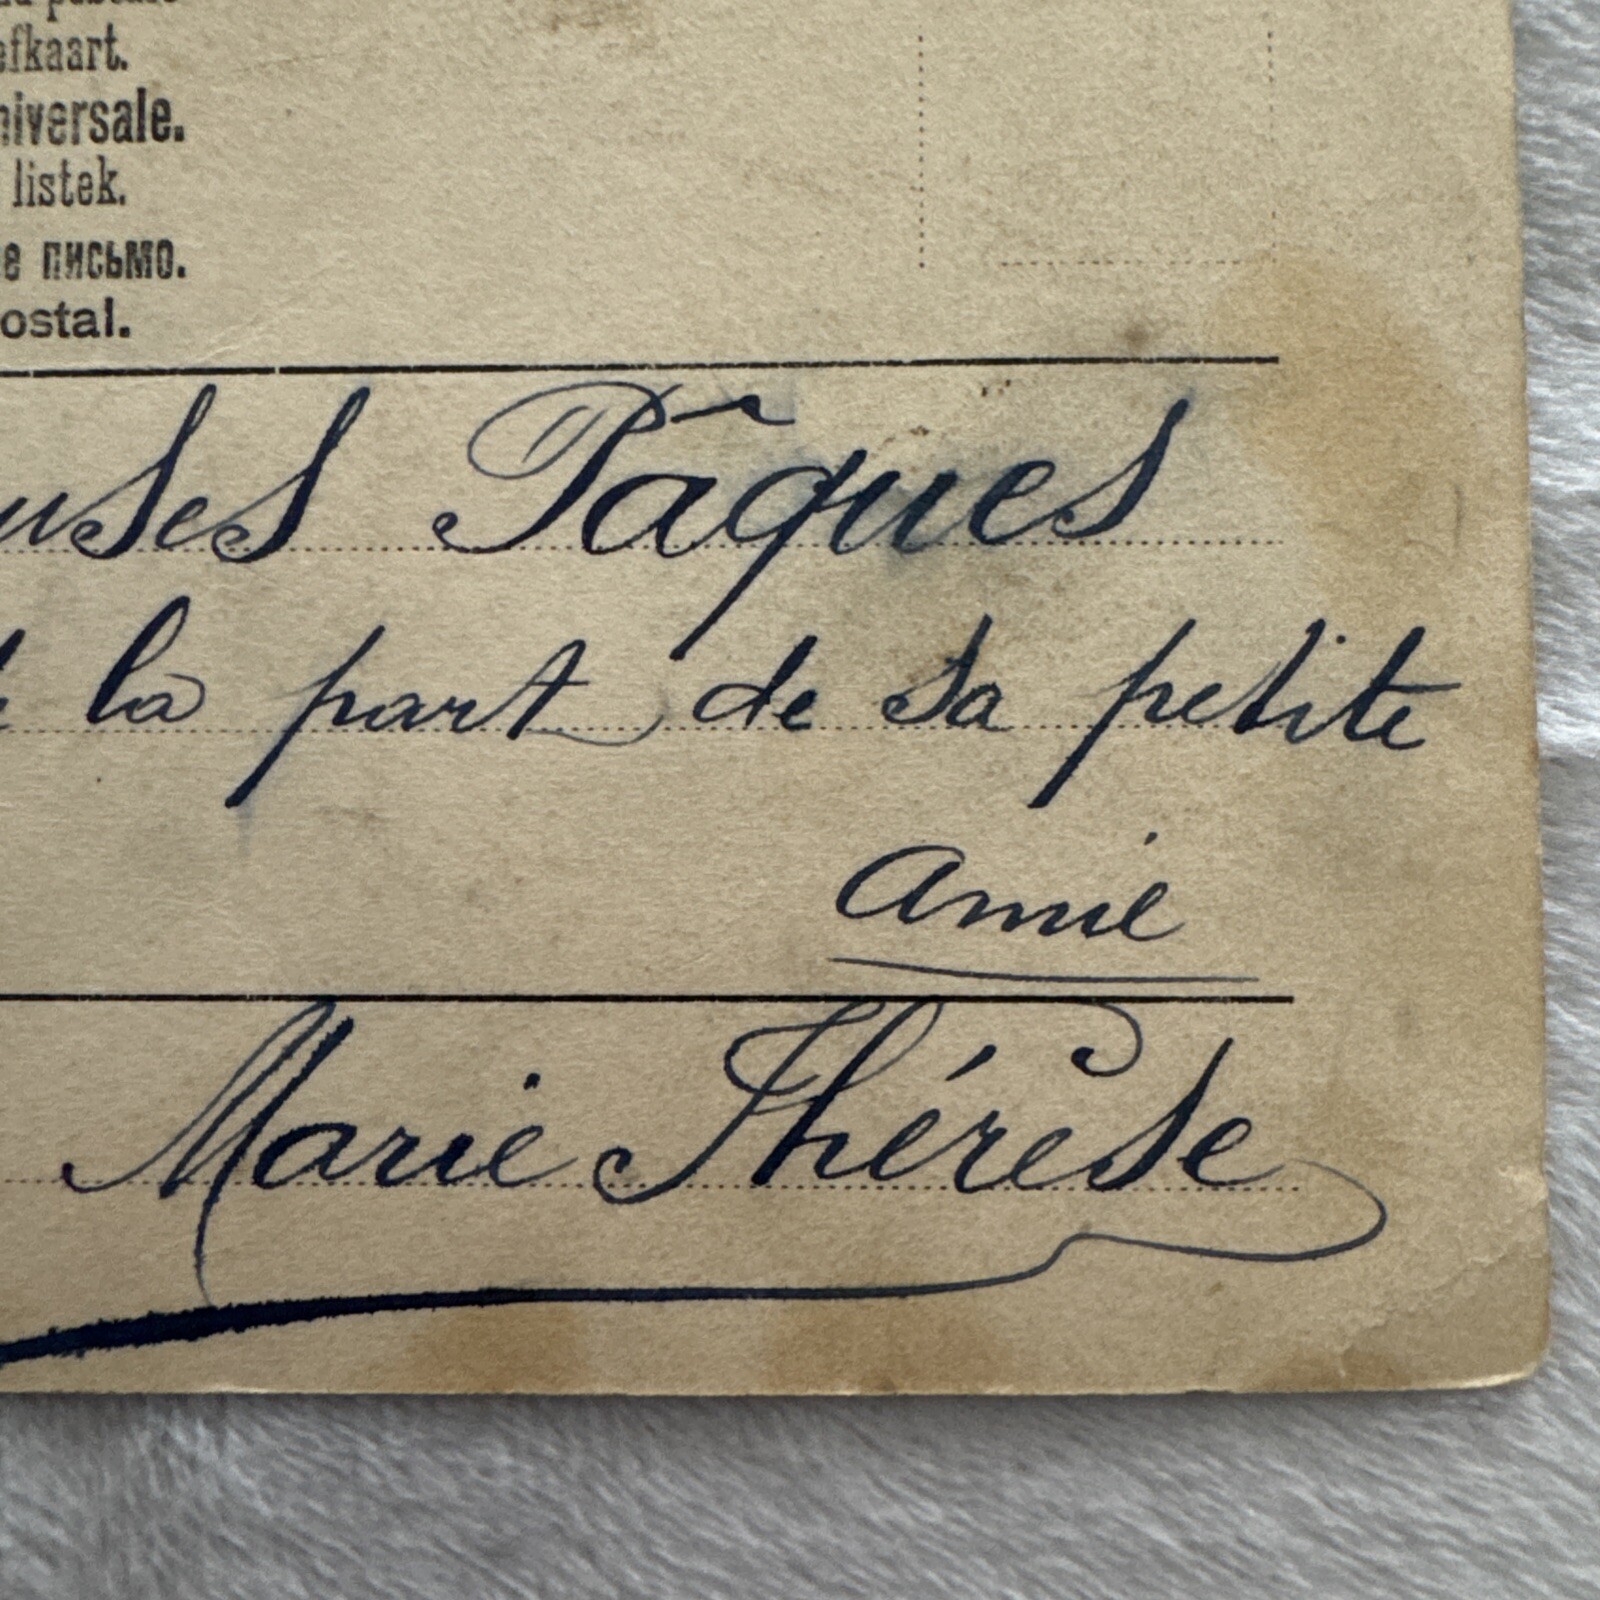 efkaart.
niversale.
listek.
е письмо.
ostal.
uses Pâques
la part de sa petite
amie
Marie Thérèse